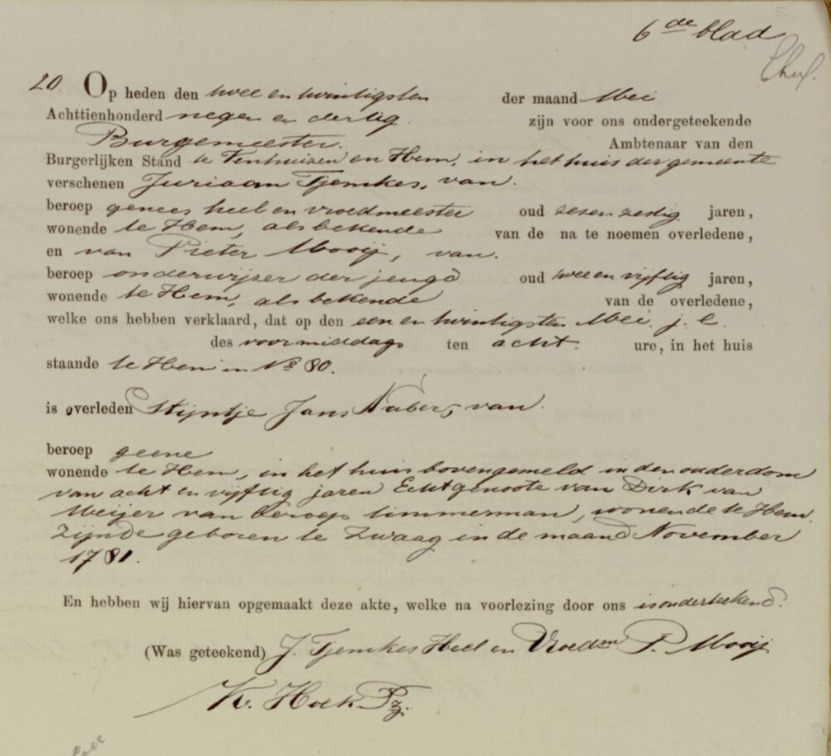 6de blad
20 Op heden den twee en twintigsten der maand Mei
Achttienhonderd negen en dertig zijn voor ons ondergeteekende
Burgemeester. Ambtenaar van den
Burgerlijken Stand te Venhuizen en Hem, in het huis der gemeente
verschenen Juriaan Tjemkes, van.
beroep genees heel en vroedmeester oud zesen zestig jaren,
wonende te Hem, als bekende van de na te noemen overledene,
en van Pieter Mooij, van.
beroep onderwijzer der jeugd oud twee en vijftig jaren,
wonende te Hem, als bekende van de overledene,
welke ons hebben verklaard, dat op den een en twintigsten Mei j. l.
des voormiddags ten acht ure, in het huis
staande te Hem in No 80.
is overleden Stijntje Jans Naber, van.
beroep geene
wonende te Hem, in het huis bovengemeld in den ouderdom
van acht en vijftig jaren Echtgenoote van Dirk van
Meijer van beroep timmerman, wonende te Hem.
Zijnde geboren te Zwaag in de maand November
1781.
En hebben wij hiervan opgemaakt deze akte, welke na voorlezing door ons is onderteekend.
(Was geteekend) J. Tjemkes Heel en Vroedm P. Mooij
K. Hoek Pz.